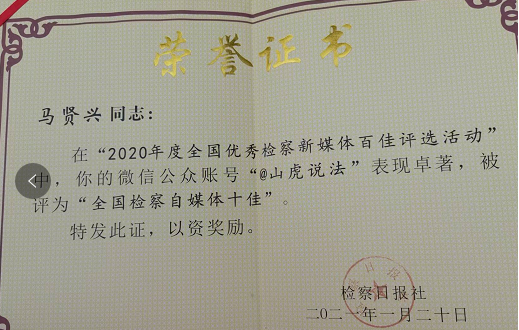 荣誉证书
马贤兴同志：
在“2020年度全国优秀检察新媒体百佳评选活动”
中，你的微信公众账号“@山虎说法”表现卓著，被
评为“全国检察自媒体十佳”。
特发此证，以资奖励。
检察日报社
二〇二一年一月二十日